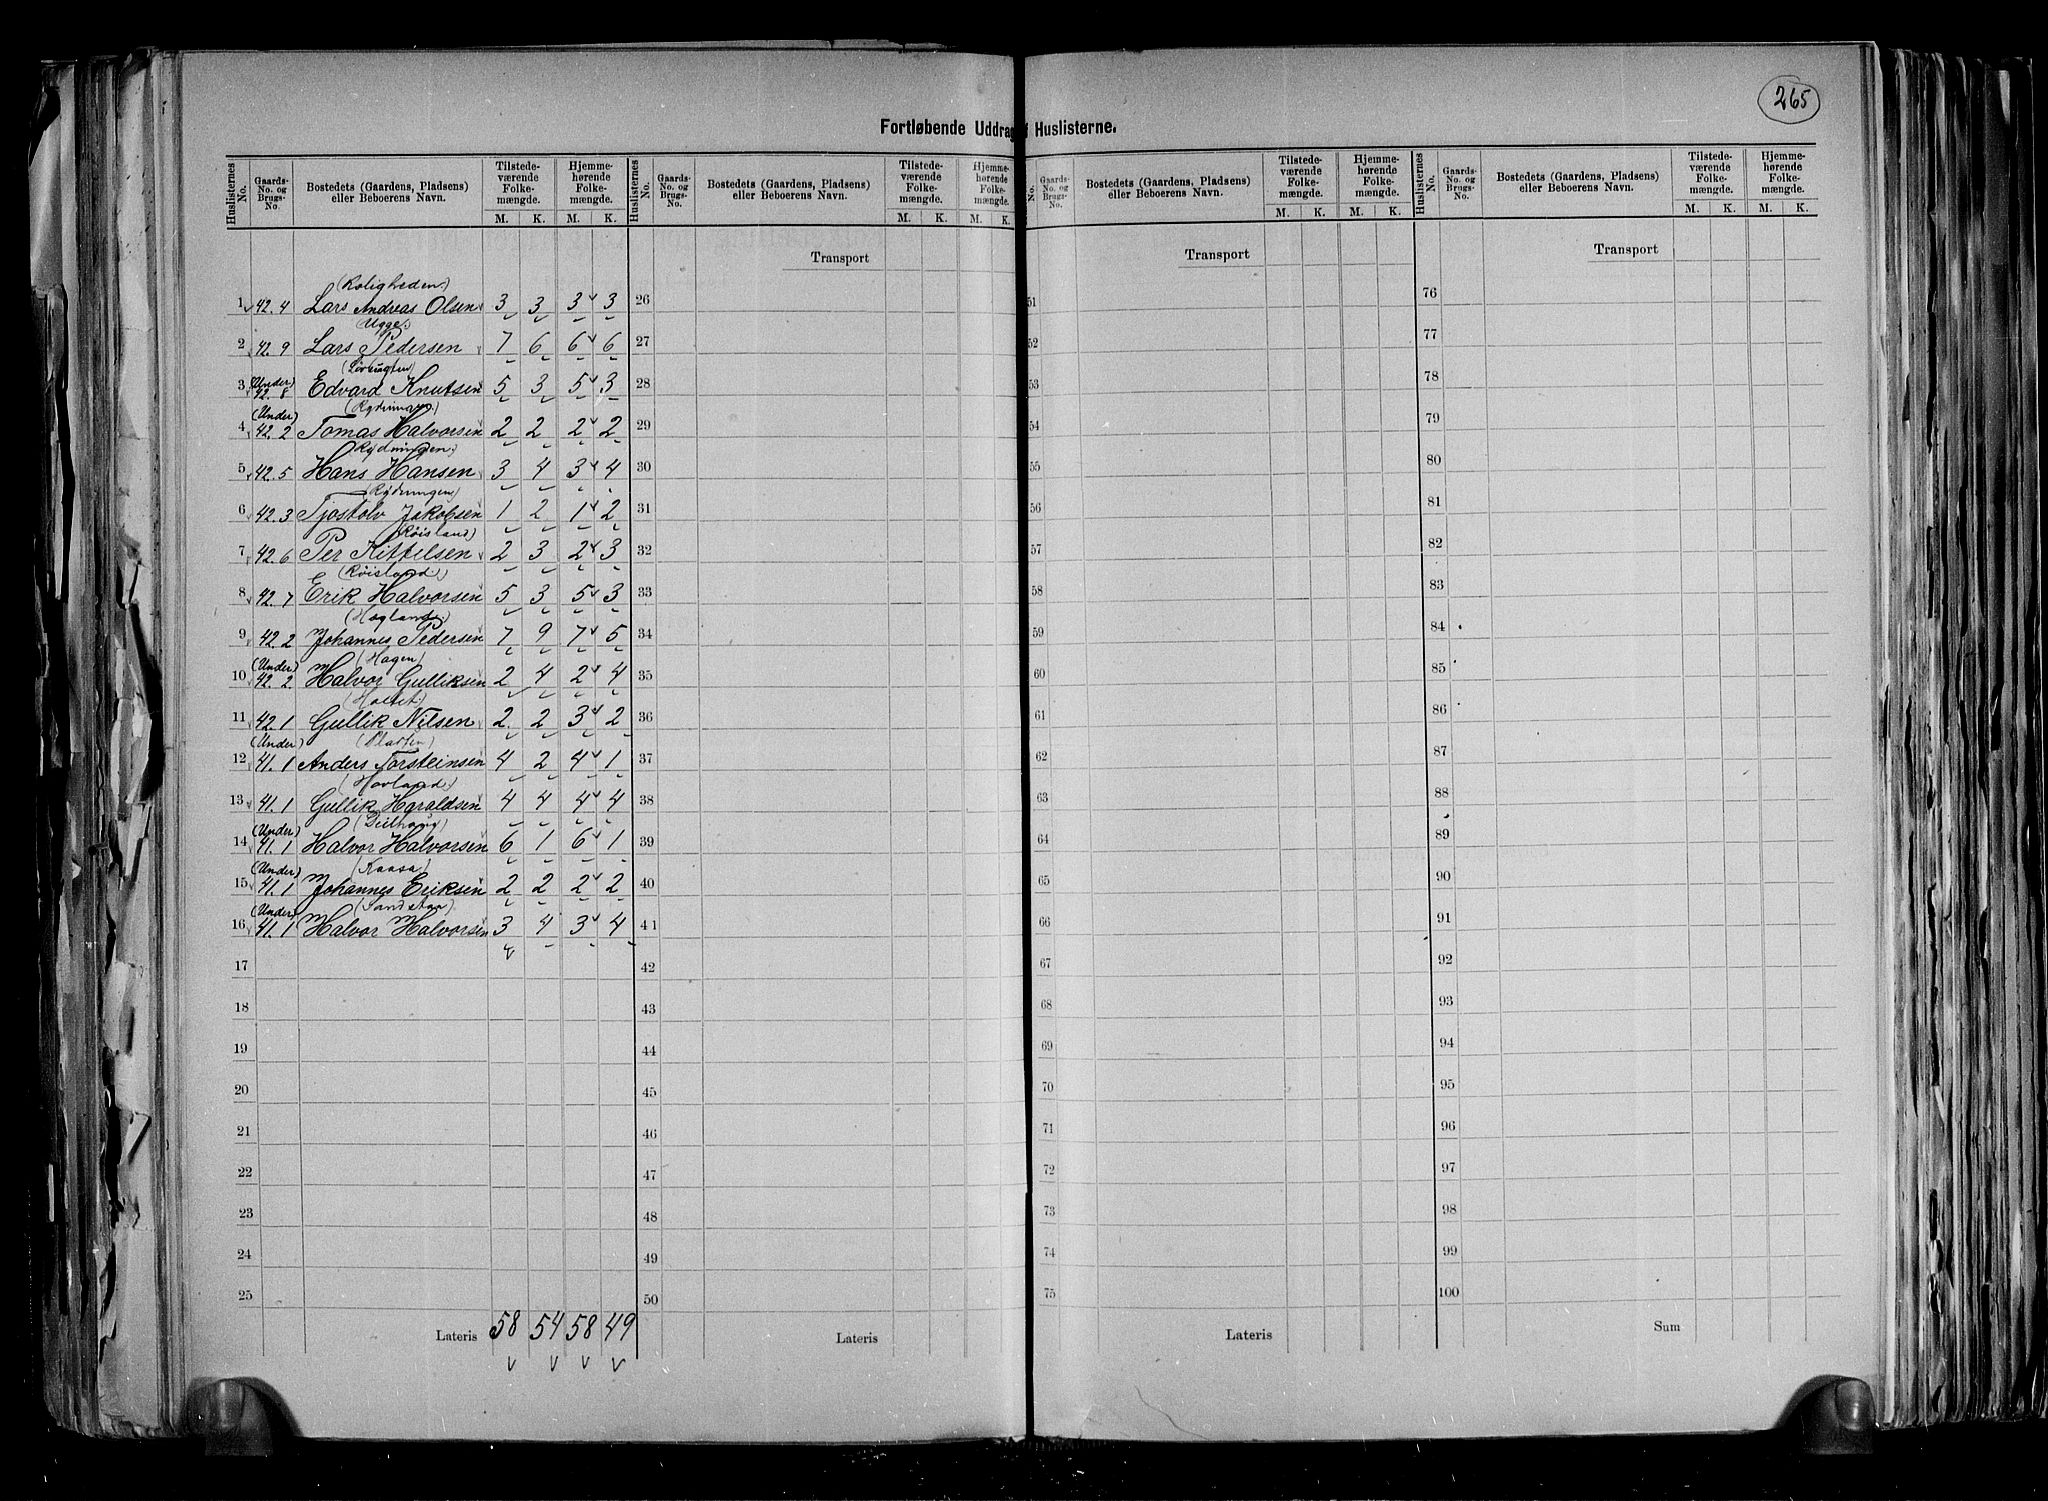 265
Fortløbende Uddrag Huslisterne.
Huslisternes No. Gaards-No. og Brugs-No. Bostedets (Gaardens, Pladsens) eller Beboerens Navn. Tilstedeværende Folkemængde. M. K. Hjemmehørende Folkemængde. M. K.
Huslisternes No. Gaards-No. og Brugs-No. Bostedets (Gaardens, Pladsens) eller Beboerens Navn. Tilstedeværende Folkemængde. M. K. Hjemmehørende Folkemængde. M. K.
No. Gaards-No. og Brugs-No. Bostedets (Gaardens, Pladsens) eller Beboerens Navn. Tilstedeværende Folkemængde. M. K. Hjemmehørende Folkemængde. M. K.
Huslisternes No. Gaards-No. og Brugs-No. Bostedets (Gaardens, Pladsens) eller Beboerens Navn. Tilstedeværende Folkemængde. M. K. Hjemmehørende Folkemængde. M. K.
Transport Transport Transport
(Roligheden)
1 42.4 Lars Andreas Olsen 3 3 3 3 26 51 76
2 42.9 Lars Pedersen 7 6 6 6 27 52 77
(Under)
3 42.8 Edvard Knutsen 5 3 5 3 28 53 78
(Under)
4 42.2 Tomas Halvorsen 2 2 2 2 29 54 79
(Rydningen)
5 42.5 Hans Hansen 3 4 3 4 30 55 80
(Rydningen)
6 42.3 Tjostolv Jakobsen 1 2 1 2 31 56 81
(Røisland)
7 42.6 Per Kittelsen 2 3 2 3 32 57 82
(Røisland)
8 42.7 Erik Halvorsen 5 3 5 3 33 58 83
(Hogland)
9 42.2 Johannes Pedersen 7 9 7 5 34 59 84
(Under) (Hagen)
10 42.2 Halvor Gulliksen 2 4 2 4 35 60 85
(Holtet)
11 42.1 Gullik Nilsen 2 2 3 2 36 61 86
(Under) (Platfen)
12 41.1 Anders Torsteinsen 4 2 4 1 37 62 87
(Hovland)
13 41.1 Gullik Haraldsen 4 4 4 4 38 63 88
(Under)
14 41.1 Halvor Halvorsen 6 1 6 1 39 64 89
(Under) (Kaasa)
15 41.1 Johannes Eriksen 2 2 2 2 40 65 90
(Under)
16 41.1 Halvor Halvorsen 3 4 3 4 41 66 91
17 42 67 92
18 43 68 93
19 44 69 94
20 45 70 95
21 46 71 96
22 47 72 97
23 48 73 98
24 49 74 99
25 50 75 100
Lateris 58 54 58 49 Lateris Lateris Sum